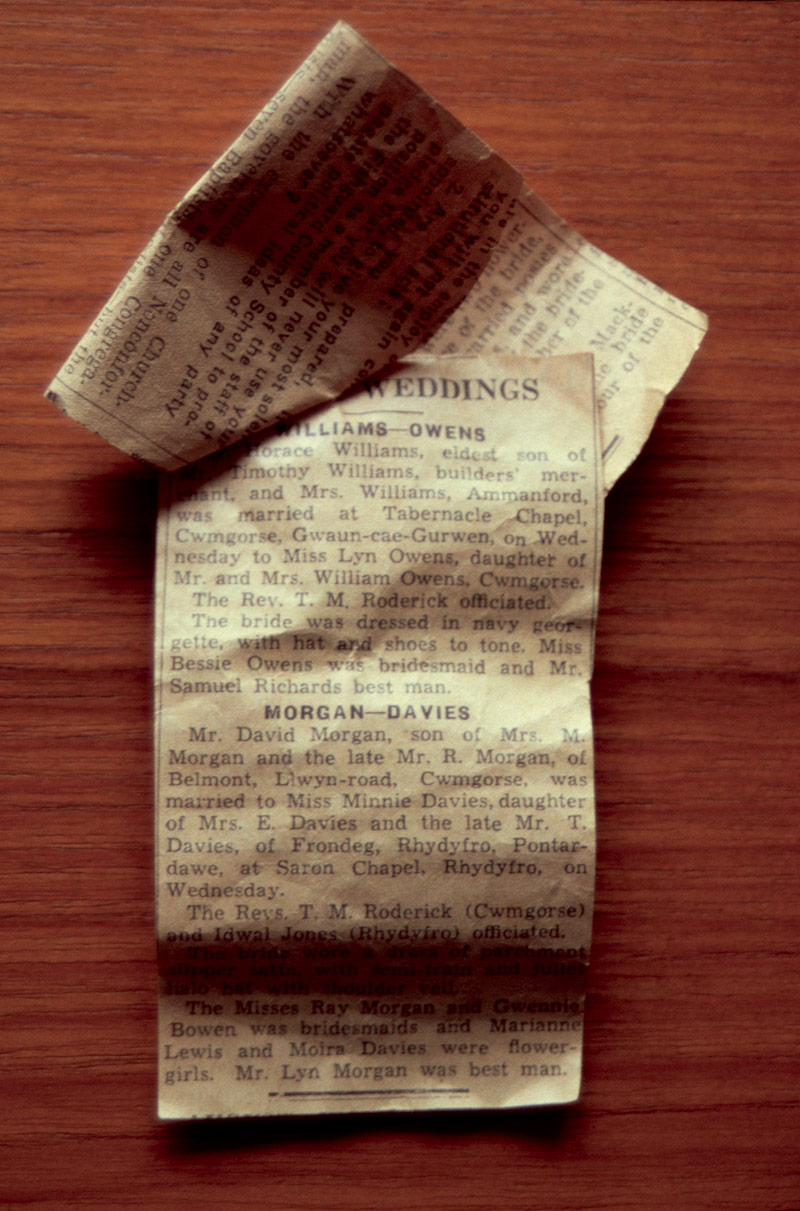 WEDDINGS
WILLIAMS—OWENS
Horace Williams, eldest son of
Timothy Williams, builders' mer-
chant, and Mrs. Williams, Ammanford,
was married at Tabernacle Chapel,
Cwmgorse, Gwaun-cae-Gurwen, on Wed-
nesday to Miss Lyn Owens, daughter of
Mr. and Mrs. William Owens, Cwmgorse.
The Rev. T. M. Roderick officiated.
The bride was dressed in navy geor-
gette, with hat and shoes to tone. Miss
Bessie Owens was bridesmaid and Mr.
Samuel Richards best man.
MORGAN—DAVIES
Mr. David Morgan, son of Mrs. M.
Morgan and the late Mr. R. Morgan, of
Belmont, Llwyn-road, Cwmgorse, was
married to Miss Minnie Davies, daughter
of Mrs. E. Davies and the late Mr. T.
Davies, of Frondeg, Rhydyfro, Pontar-
dawe, at Saron Chapel, Rhydyfro, on
Wednesday.
The Revs. T. M. Roderick (Cwmgorse)
and Idwal Jones (Rhydyfro) officiated.
The bride wore a dress of parchment
slipper satin, with semi-train and juliet
halo hat with shoulder veil.
The Misses Ray Morgan and Gwennie
Bowen was bridesmaids and Marianne
Lewis and Moira Davies were flower-
girls. Mr. Lyn Morgan was best man.
you will not again
in the employ
2. Are you
prepared,
to give your most solemn
position that you will never use your
as a member of the staff of
the Fishguard County School to pro-
political ideas of any party
whatsoever?
With the exception of one Church-
man, the governors are all Nonconfor-
seven Baptists, one Congrega-
the
flower.
of the bride,
carried posies
and word
the bride-
of the
Mack-
bride
our of the